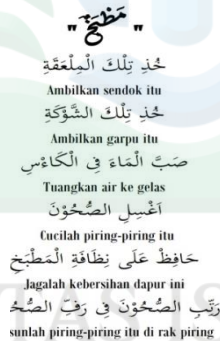 " مَطْبَخٌ "
خُذِ تِلْكَ الْمِلْعَقَةِ
Ambilkan sendok itu
خُذِ تِلْكَ الشَّوْكَةِ
Ambilkan garpu itu
صَبَّ الْمَاءَ فِى الْكَاءْسِ
Tuangkan air ke gelas
اَغْسِلِ الصُّحُوْنَ
Cucilah piring-piring itu
حَافِظْ عَلَى نِظَافَةِ الْمَطْبَخِ
Jagalah kebersihan dapur ini
رَتِّبِ الصُّحُوْنَ فِي رَفِّ الصُّحُ
sunlah piring-piring itu di rak piring